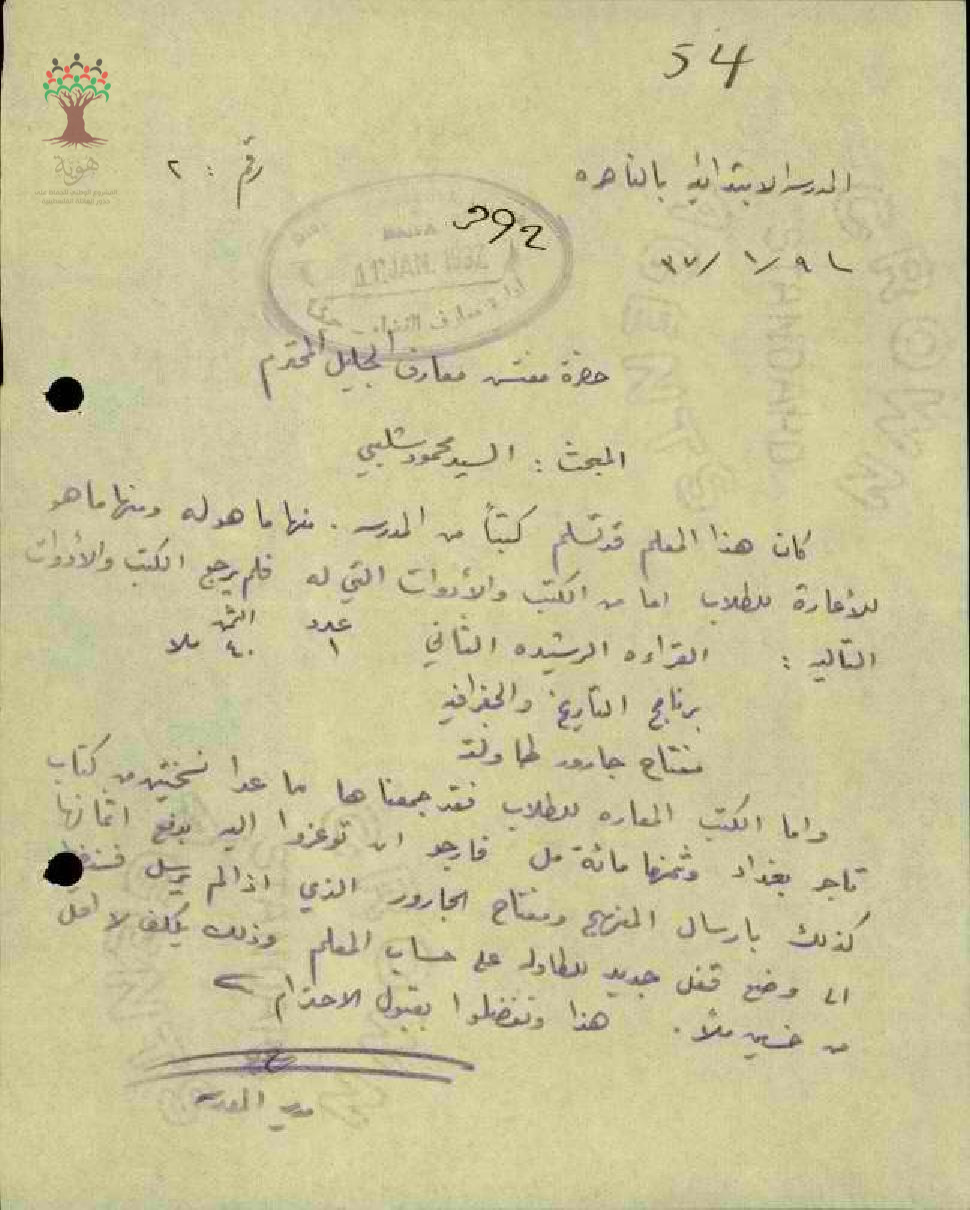 54
هوية
رقم : ٢
المدرسه الابتدائيه بالناصره
392
٣٧/١/٩
ادارة معارف اللواء - حيفا
حضرة مفتش معارف الجليل المحترم
المبحث : السيد محمود شلبي
كان هذا المعلم قد تسلم كتباً من المدرسه . منها ما هو له ومنها ما هو
للأعارة للطلاب اما من الكتب والأدوات التي له فلم يرجع الكتب والأدوات
التاليه : القراءه الرشيده الثاني عدد ١ الثمن ٤٠ ملا
برنامج التاريخ والجغرافيه
مفتاح جارور طاولة
واما الكتب المعاره للطلاب فقد جمعناها ما عدا نسختين من كتاب
تاجر بغداد وثمنها مائة مل فارجو ان توعزوا اليه بدفع اثمانها
كذلك بارسال المنهج ومفتاح الجارور الذي اذا لم يرسل فسنضطر
الى وضع قفل جديد للطاوله على حساب المعلم وذلك يكلف لا اقل
من خمسين ملاً . هذا وتفضلوا بقبول الاحترام
مدير المدرسه